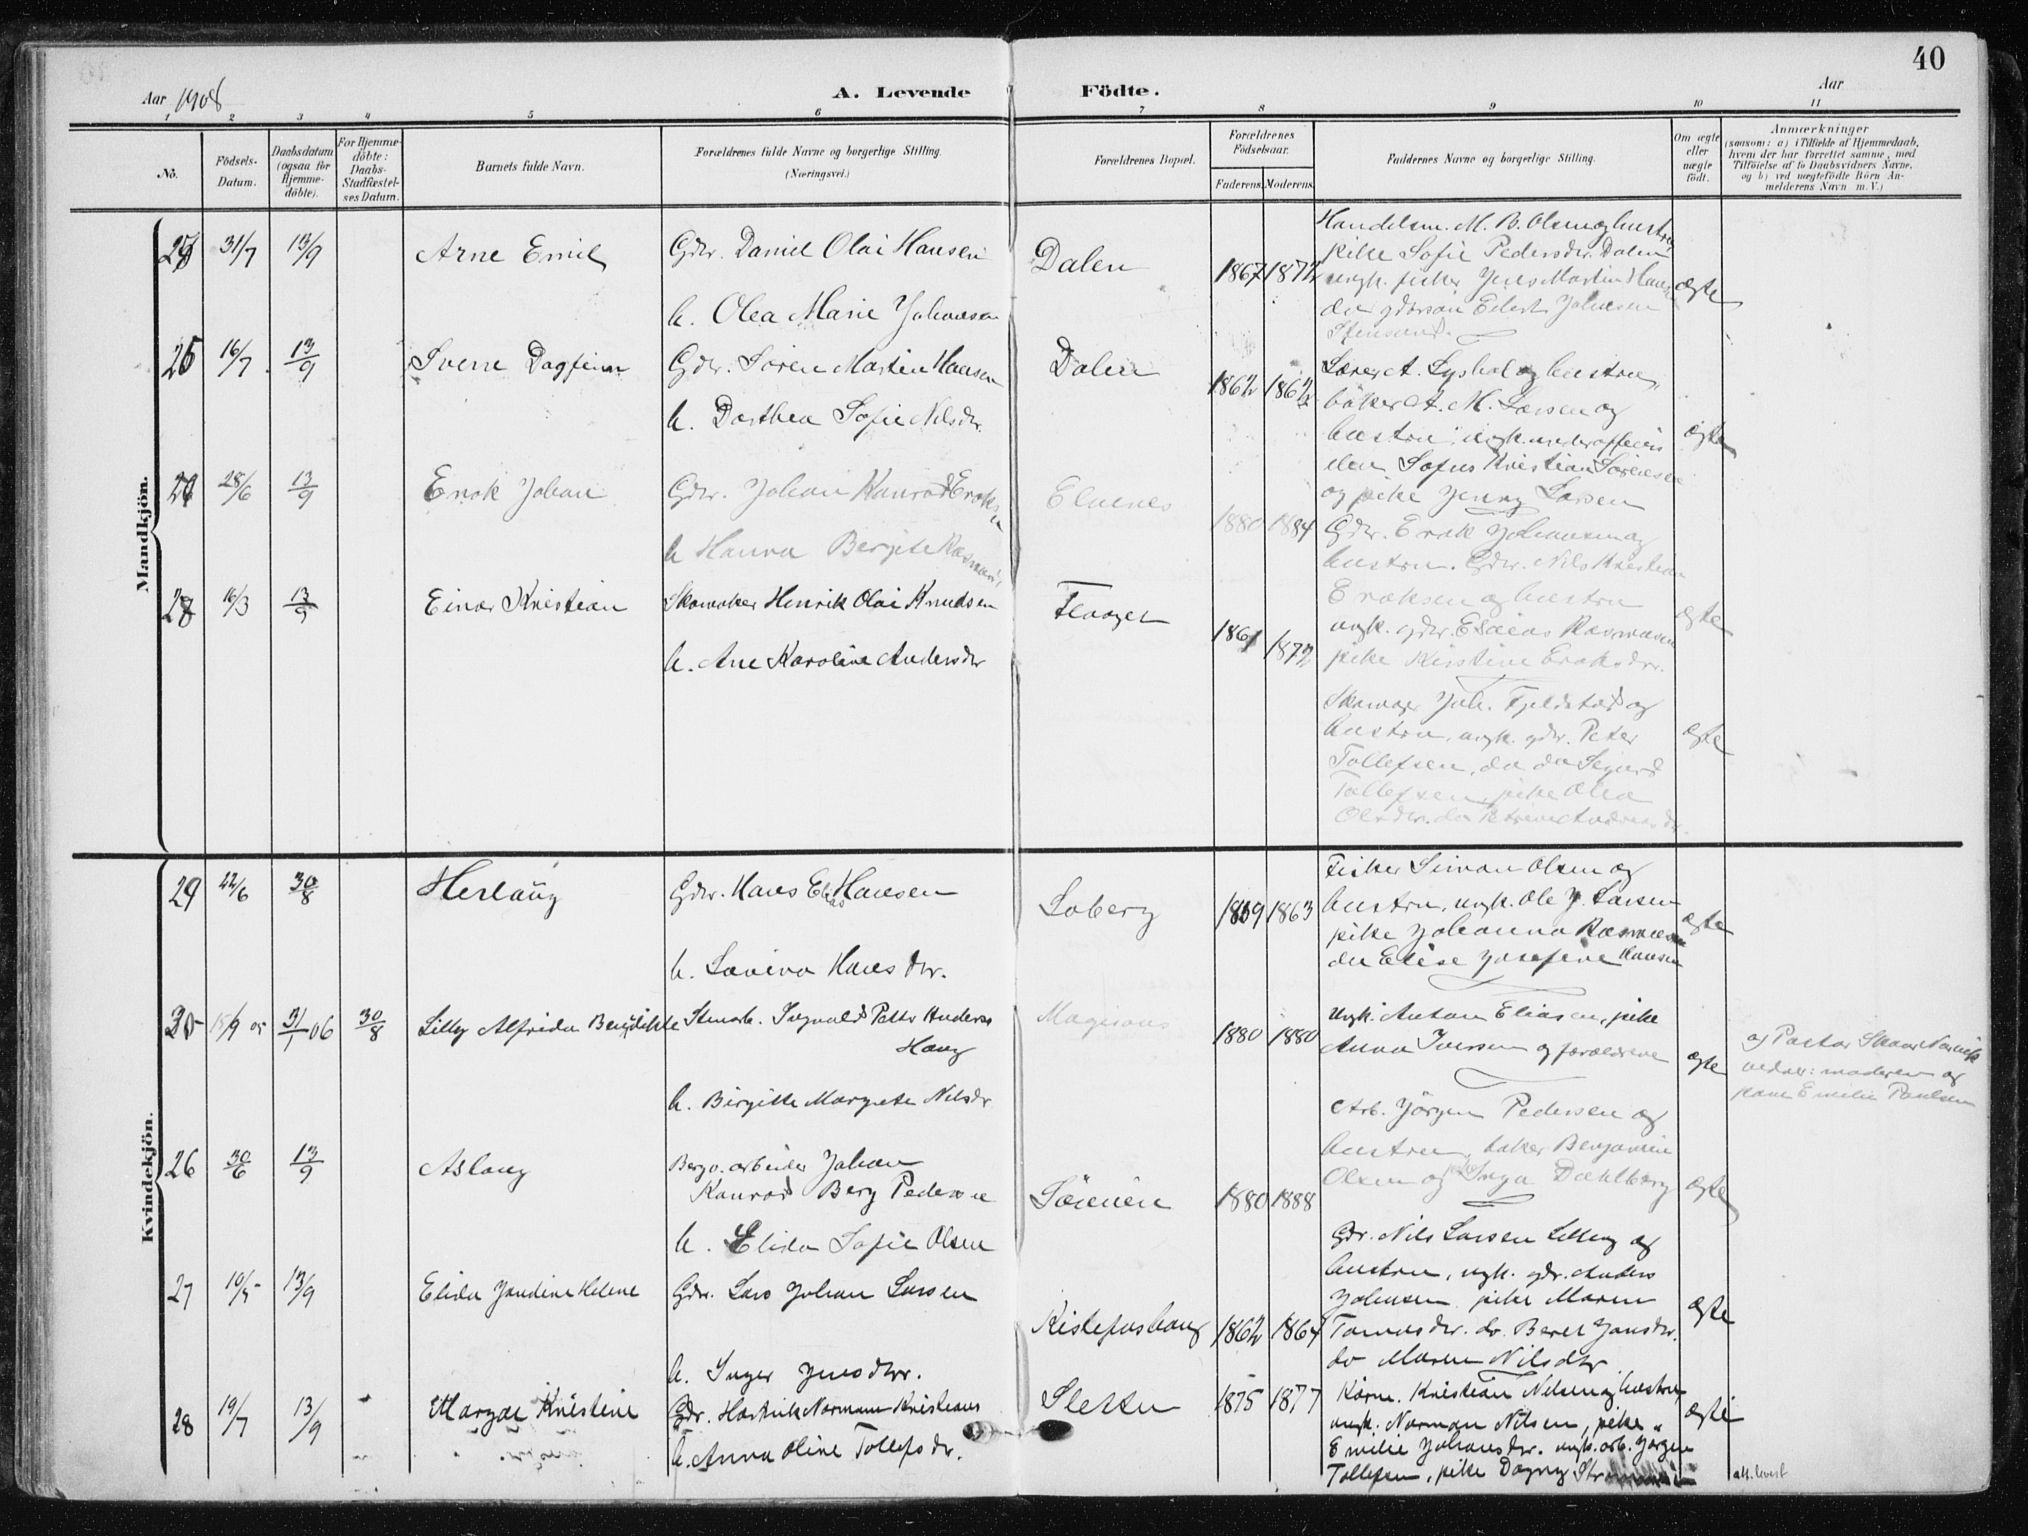 40
Aar 1908
A. Levende Födte.
Aar
1 2 3 4 5 6 7 8 9 10 11
No.
Födsels-Datum.
Daabsdatum (ogsaa for Hjemme-döbte).
For Hjemme-döbte: Daabs-Stadfæstel-ses Datum.
Barnets fulde Navn.
Forældrenes fulde Navne og borgerlige Stilling.
(Næringsvei.)
Forældrenes Bopæl.
Forældrenes Födselsaar.
Faderens. Moderens.
Faddernes Navne og borgerlige Stilling.
Om ægte eller uægte födt.
Anmærkninger
(saasom: a) i Tilfælde af Hjemmedaab, hvem der har forrettet samme, med Tilföielse af to Daabsvidners Navne, og b) ved uægtefödte Börn An-melderens Navn m. V.)
Mandkjön.
31/7 13/9 Arne Emil
Gdr. Daniel Olai Hansen
h. Olea Marie Johansen
Dalen
1867 1872
Handelsm. M. B. Olsen og hustru
pike Sofie Pedersdr. Dalen
ungk. fisker Jens Martin Hansen
Johansen
ægte
25 16/7 13/9 Sverre Dagfinn
Gdr. Sören Martin Hansen
h. Dorthea Sofie Nilsdr.
Dalen
1862 1862
Lærer A. Lyshol og hustru,
bäker A. M. Larsen og
hustru, ungk. underofficer
Sofus Kristian Sörensen
og pike Jenny Larsen
ægte
28/6 13/9 Erik Johan
Gdr. Johan Konrad Eriksen
h Hanna Bergite Rasmus
Elvenes
1880 1884
Gdr. Erik Johansen og
hustru. Gdr. Nils Kristian
Eriksen og hustru
ungk. gdr. Elias Rasmusen
pike Kirstine Eriksdr.
ægte
28 16/3 13/9 Einar Kristian
Skomaker Henrik Olai Knudsen
h. Ane Karoline Andersdr
1861 1872
Skomager Joh. Fjeldstad og
hustru, ungk. gdr. Peter
Tollefsen, do do Sigurd
Tollefsen, pike Olea
Olsdr.
ægte
Kvindekjön.
29 22/6 30/8 Herlaug
Gdr. Hans Elias Hansen
h. Lovina Hansdtr.
Soberg
1859 1863
Fisker Simon Olsen og
hustru, ungk. Ole J. Larsen
pike Johanna Rasmussen
do Elise Josefine Hansen
ægte
15/9 05 31/1 06 30/8 Lilly Alfrida Benedikte
Stenarb. Ingvald Peter Anders
Haug
h. Birgitte Margrete Nilsdr
1880 1880
Ungk. Anton Eliasen, pike
Anna Iversen og forældrene
ægte
af Pastor Skaar Narvik
vidner: moderen og
Emilie Paulsen
26 30/6 13/9 Aslaug
Bergv. arbeider Johan
Konrad Berg Pedersen
h. Elida Sofie Olsen
Sörvien
1880 1888
Arb. Jörgen Pedersen og
hustru, baker Benjamin
Olsen og Inga Dahlberg
ægte
27 10/5 13/9 Elida Jondine Helene
Gdr. Lars Johan Larsen
h. Inger Jensdtr.
Kistefoshaug
1862 1864
Gdr. Nils Larsen Lilleng og
hustru, ungk. gdr. Anders
Johnsen, pike Maren
Tomasdr. do Beret Jonsdtr.
do Maren Nilsdtr
ægte
28 19/7 13/9 Margot Kristine
Gdr. Hartvik Norman Kristians
h. Anna Oline Tollefsdr.
Sletten
1875 1877
Kirne. Kristian Nilsen og hustru,
ungk. Norman Nilsen, pike
Emilie Johansdr. ungk. arb. Jörgen
Tollefsen, pike Dagny
ægte
att. levert